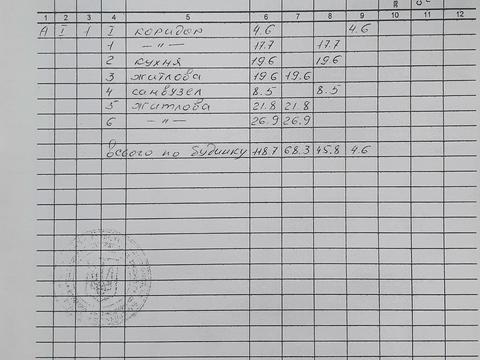 1 2 3 4 5 6 7 8 9 10 11 12
А I 1 I коридор 4.6 4.6
1 —〃— 17.7 17.7
2 кухня 19.6 19.6
3 житлова 19.6 19.6
4 санвузел 8.5 8.5
5 житлова 21.8 21.8
6 —〃— 26.9 26.9
Всього по будинку 118.7 68.3 45.8 4.6